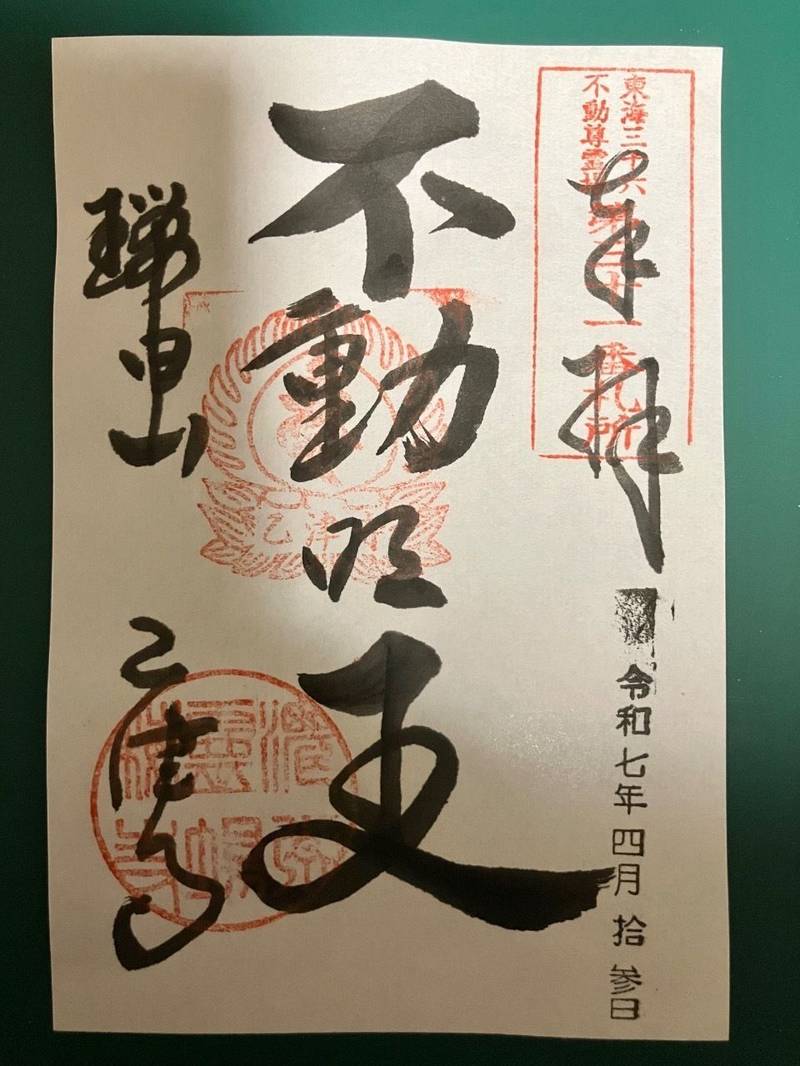 東海三十六
不動尊霊場第三十一番札所
奉拝
令和七年四月拾参日
不動明王
乙津寺
瑞甲山
乙津寺